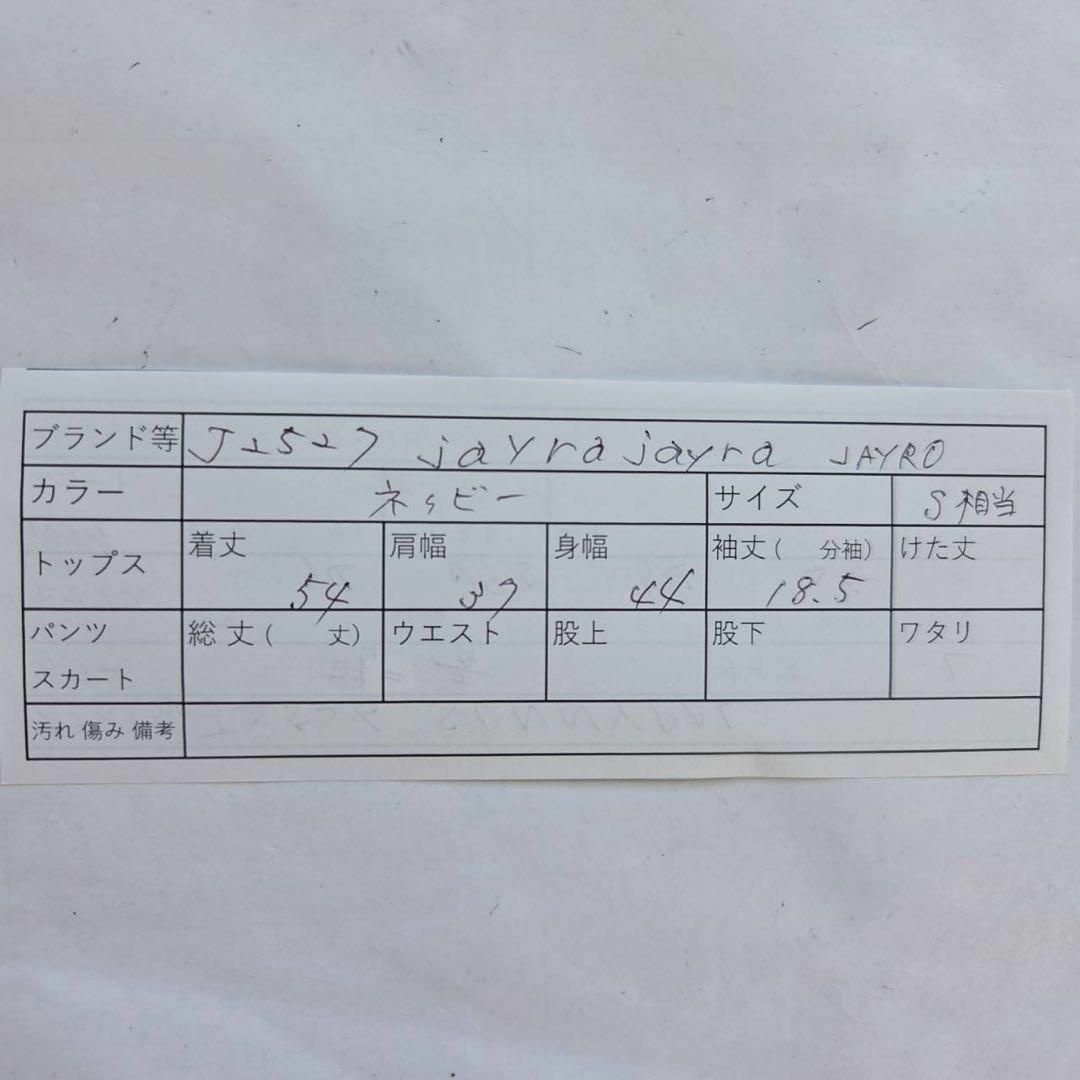 ブランド等 J2527 jayrajayra JAYRO
カラー ネイビー サイズ S相当
トップス 着丈 54 肩幅 37 身幅 44 袖丈( 分袖) 18.5 けた丈
パンツ スカート 総丈( 丈) ウエスト 股上 股下 ワタリ
汚れ 傷み 備考